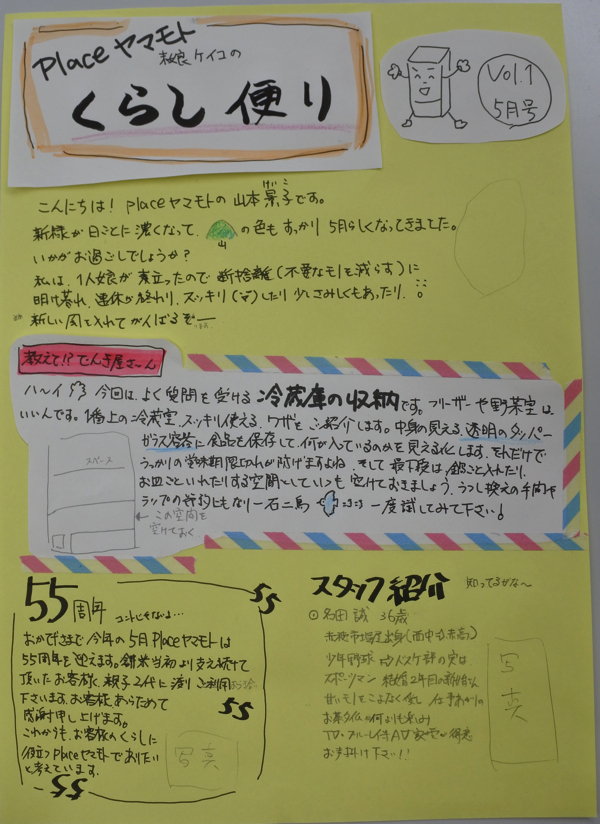 Place ヤマモト
ケイコの
くらし便り
Vol.1
5月号
こんにちは! Placeヤマモトの山本景子です。
けいこ
新緑が日ごとに濃くなって、
山
の色もすっかり5月らしくなってきました。
いかがお過ごしでしょうか?
私は、1人娘が巣立ったので断捨離(不要なモノを減らす)に
明け暮れ、連休が終わり、スッキリ したり少しさみしくもあったり、
新しい風を入れてがんばるぞー
教えて!?でんき屋さ〜ん
ハ〜イ 今回は、よく質問を受ける 冷蔵庫の収納です。フリーザーや野菜室は
いいんです。1番上の冷蔵室、スッキリ使える、ワザをご紹介します。中身の見える透明のタッパー
ガラス容器に食品を保存して、何が入っているのかを見える化します。それだけで
うっかりの賞味期限切れが防げますよね。そして最下段は、鍋ごと入れたり、
お皿ごといれたりする空間としていつも空けておきましょう。うつし換えの手間や
ラップの節約にもなり一石二鳥 一度試してみて下さい!
スペース
この空間を
空けておく
55周年
55
おかげさまで今年の5月Placeヤマモトは
55周年を迎えます。創業当初より支え続けて
頂いたお客様、親子2代に渡りご利用
下さいます、お客様、あらためて
感謝申し上げます。
これからも、お客様のくらしに
役立つPlaceヤマモトでありたい
と考えています。
55
写真
55
スタッフ紹介 知ってるかな〜
名田 誠 36歳
赤穂市塩屋出身
少年野球 バスケ部の実は
スポーツマン 結婚2年目の新婚さん
甘いモノをこよなく愛し 仕事あがりの
お茶タイムが何よりも楽しみ
TV・ブルーレイetc AV家電が得意
お声掛け下さい!!
写真